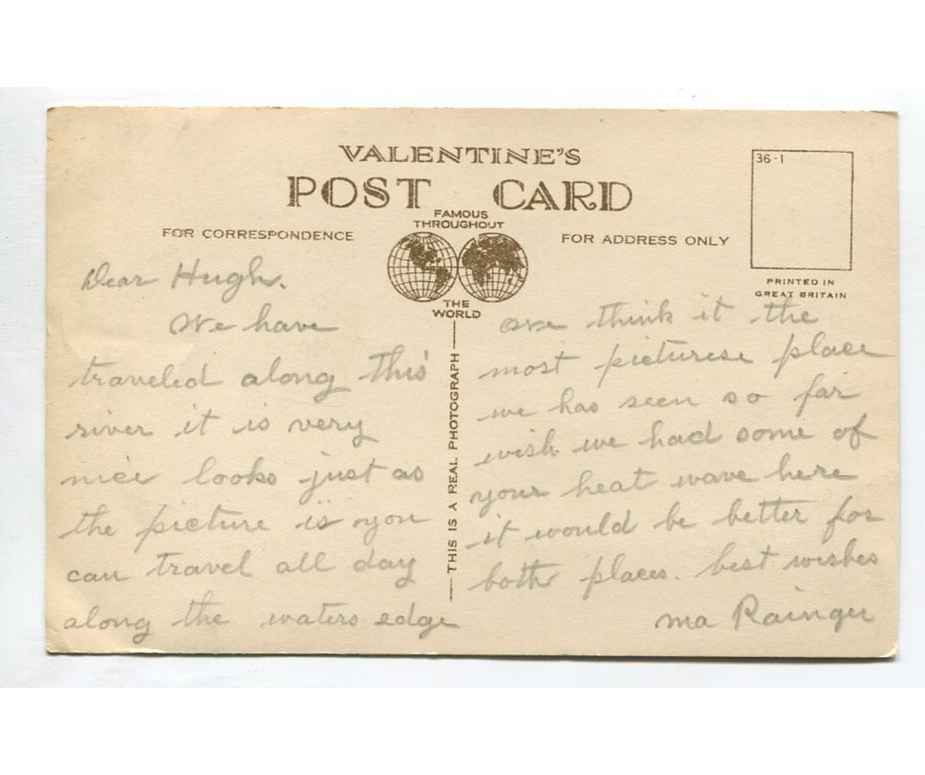 VALENTINE'S
POST CARD
FAMOUS
THROUGHOUT
THE
WORLD
FOR CORRESPONDENCE
FOR ADDRESS ONLY
36-1
PRINTED IN
GREAT BRITAIN
THIS IS A REAL PHOTOGRAPH
Dear Hugh.
We have
traveled along this
river it is very
nice looks just as
the picture is you
can travel all day
along the waters edge
we think it the
most picturese place
we has seen so far
wish we had some of
your heat wave here
it would be better for
both places. best wishes
ma Rainger